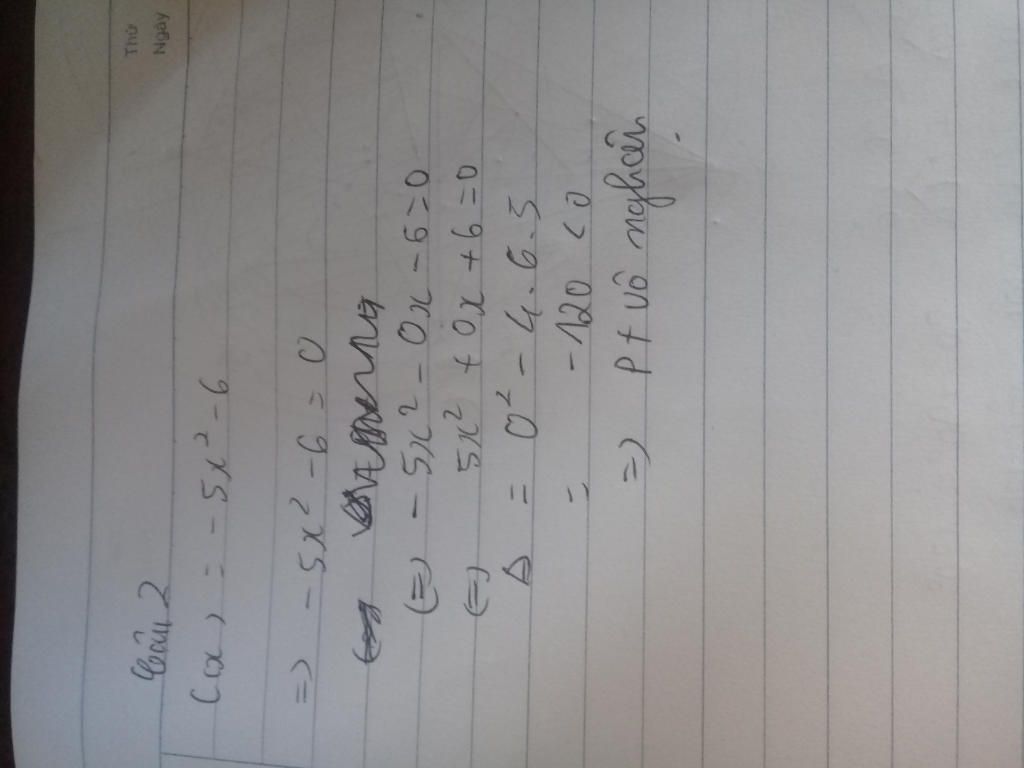 Thứ
Ngày
Câu 2
C(x) = -5x² - 6
=> -5x² - 6 = 0
(=) -5x² - 0x - 6 = 0
(=) 5x² + 0x + 6 = 0
Δ = 0² - 4.6.5
= -120 < 0
=> Pt vô nghiệm.